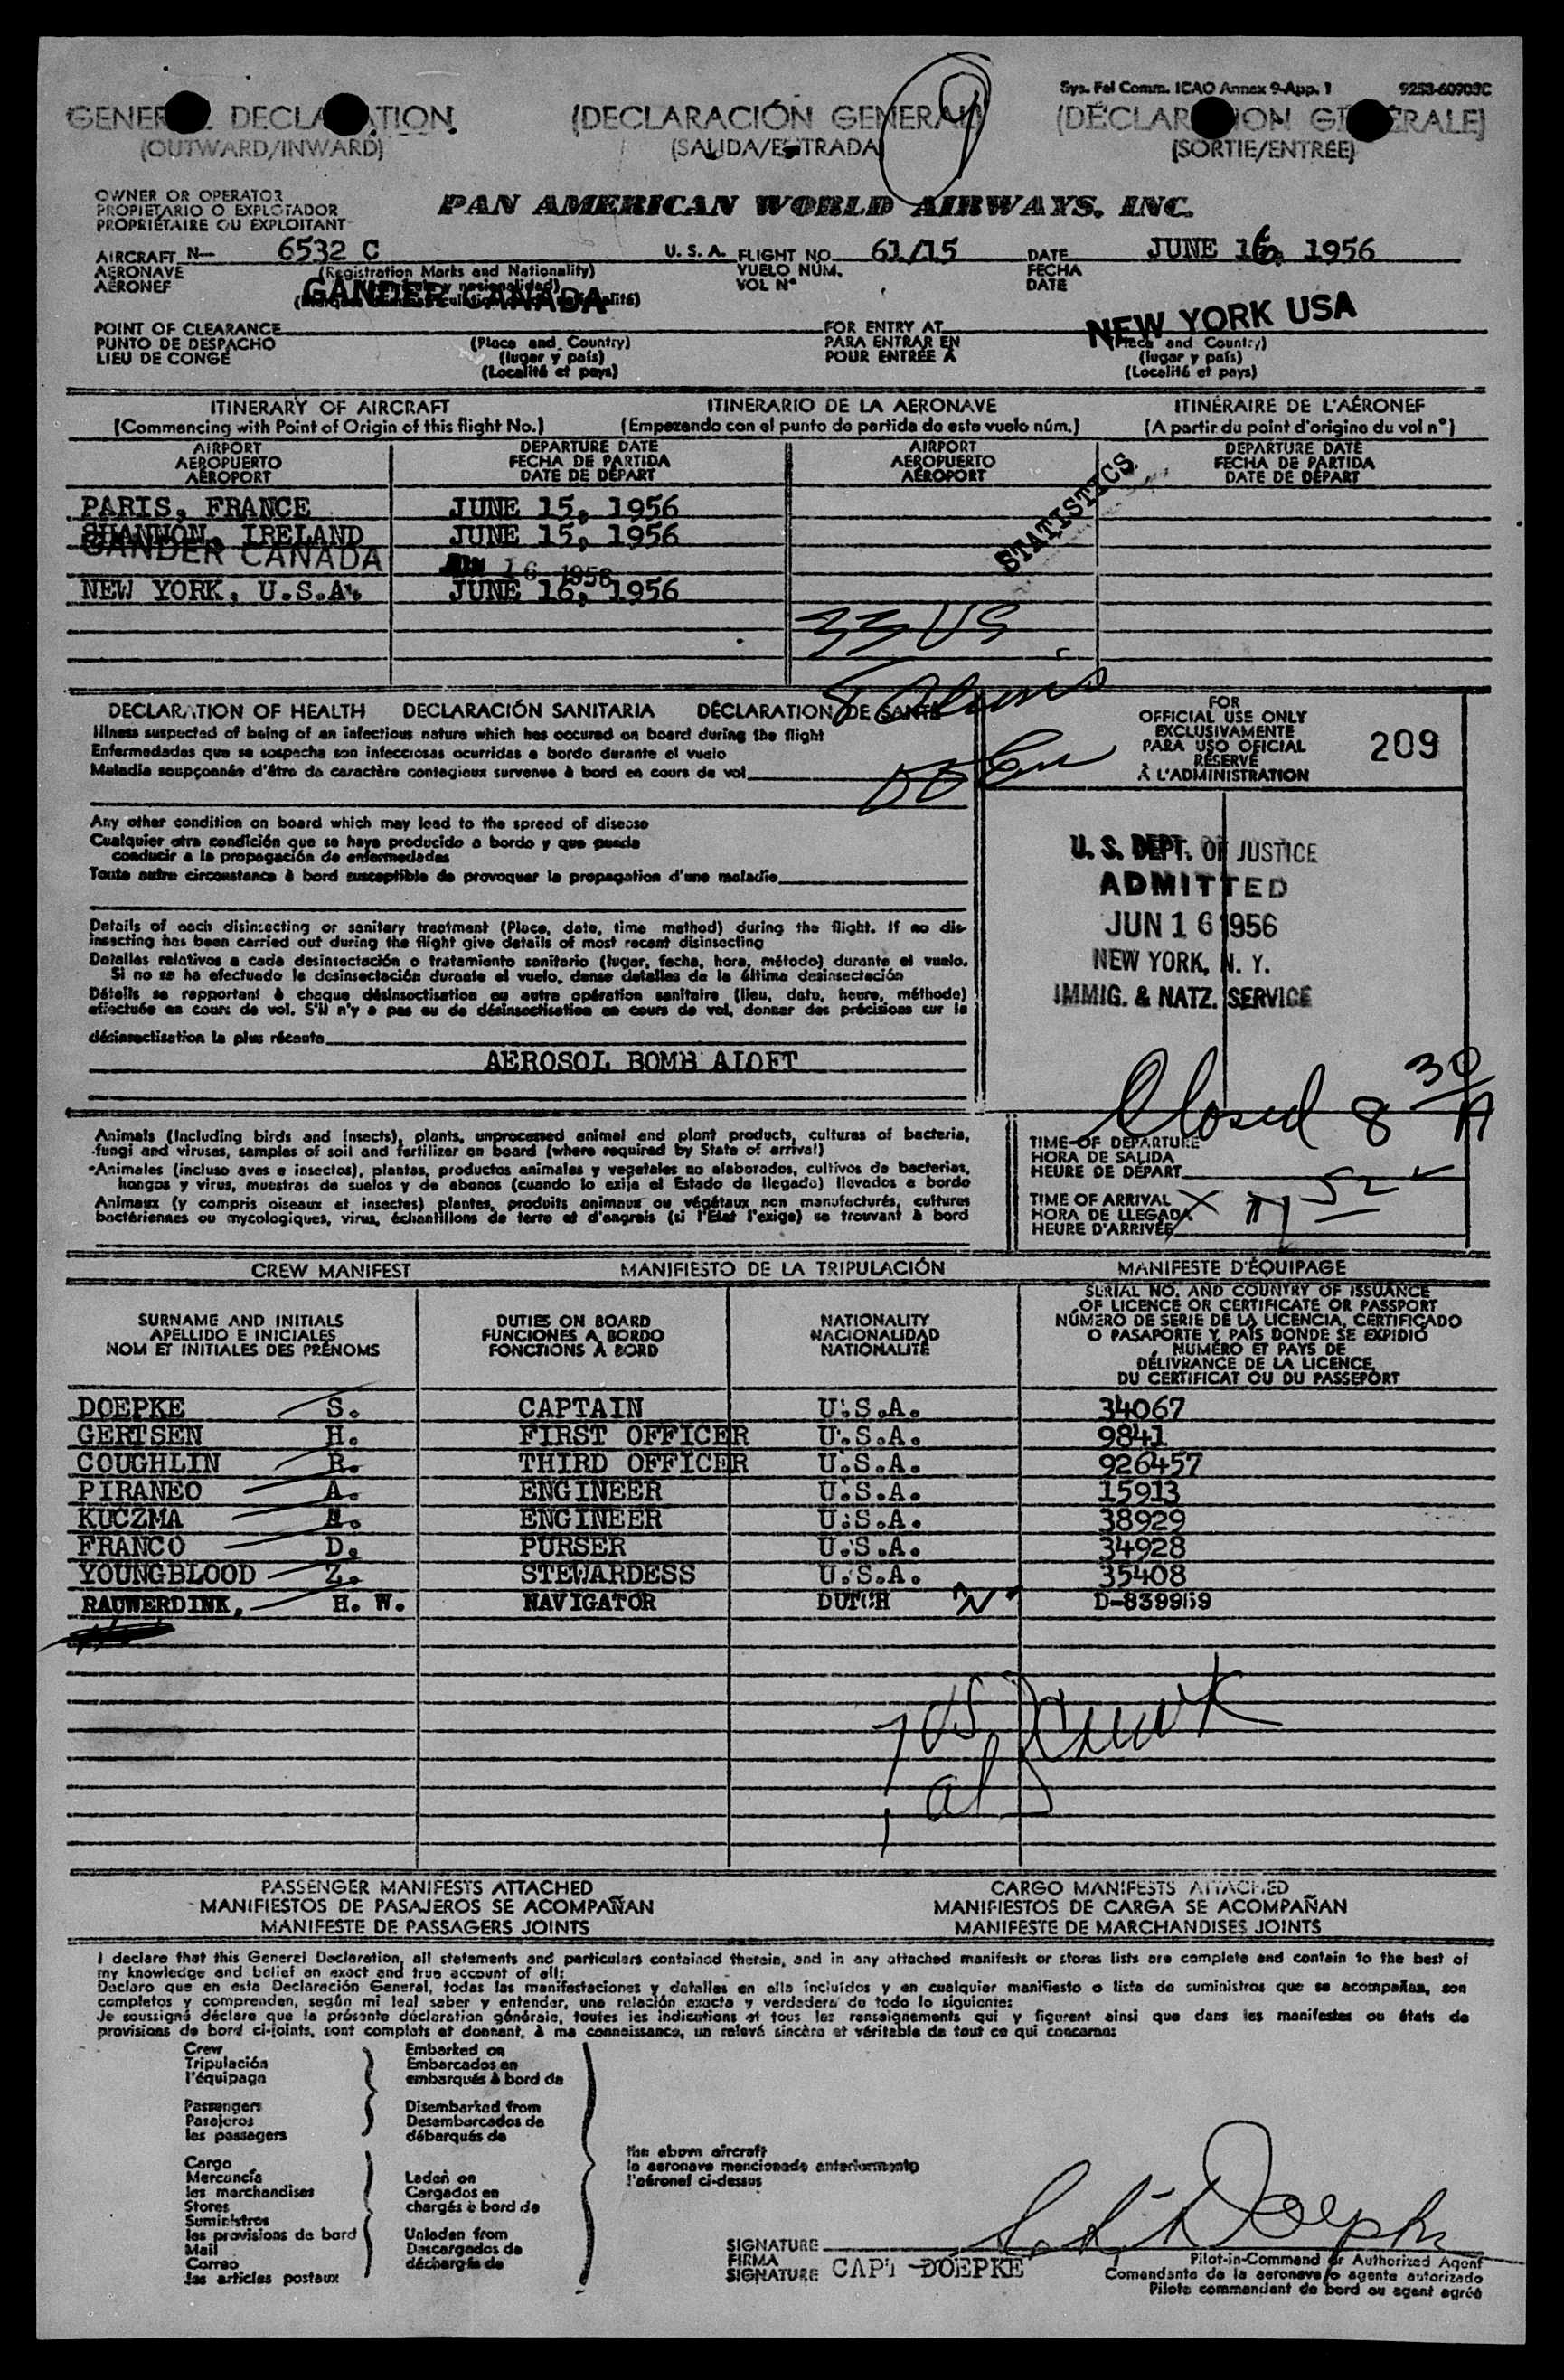 Sys. Fal Comm. ICAO Annex 9-App. 1 9253-60903C
GENERAL DECLARATION (DECLARACIÓN GENERAL) (DÉCLARATION GÉNÉRALE)
(OUTWARD/INWARD) (SALIDA/ENTRADA) (SORTIE/ENTRÉE)
OWNER OR OPERATOR
PROPIETARIO O EXPLOTADOR
PROPRIÉTAIRE OU EXPLOITANT
PAN AMERICAN WORLD AIRWAYS, INC.
AIRCRAFT N— 6532 C U. S. A. FLIGHT NO. 61/15 DATE JUNE 16, 1956
AERONAVE (Registration Marks and Nationality) VUELO NÚM. FECHA
AÉRONEF VOL Nº DATE
GANDER CANADA
NEW YORK USA
POINT OF CLEARANCE (Place and Country) FOR ENTRY AT (Place and Country)
PUNTO DE DESPACHO (lugar y país) PARA ENTRAR EN (lugar y país)
LIEU DE CONGÉ (Localité et pays) POUR ENTRÉE À (Localité et pays)
ITINERARY OF AIRCRAFT ITINERARIO DE LA AERONAVE ITINÉRAIRE DE L'AÉRONEF
(Commencing with Point of Origin of this flight No.) (Empezando con el punto de partida de este vuelo núm.) (A partir du point d'origine du vol nº)
AIRPORT DEPARTURE DATE AIRPORT DEPARTURE DATE
AEROPUERTO FECHA DE PARTIDA AEROPUERTO FECHA DE PARTIDA
AÉROPORT DATE DE DÉPART AÉROPORT DATE DE DÉPART
STATISTICS
PARIS, FRANCE JUNE 15, 1956
SHANNON, IRELAND JUNE 15, 1956
GANDER CANADA JUN 16 1956
NEW YORK, U.S.A. JUNE 16, 1956
33 US
DECLARATION OF HEALTH DECLARACIÓN SANITARIA DÉCLARATION DE SANTÉ
Illness suspected of being of an infectious nature which has occured on board during the flight
Enfermedades que se sospecha son infecciosas ocurridas a bordo durante el vuelo
Maladie soupçonnée d'être de caractère contagieux survenue à bord en cours de vol
FOR
OFFICIAL USE ONLY
EXCLUSIVAMENTE
PARA USO OFICIAL
RÉSERVÉ
À L'ADMINISTRATION
209
Any other condition on board which may lead to the spread of disease
Cualquier otra condición que se haya producido a bordo y que pueda
conducir a la propagación de enfermedades
Toute autre circonstance à bord susceptible de provoquer la propagation d'une maladie
U. S. DEPT. OF JUSTICE
ADMITTED
JUN 16 1956
NEW YORK, N. Y.
IMMIG. & NATZ. SERVICE
Details of each disinsecting or sanitary treatment (Place, date, time method) during the flight. If no dis-
insecting has been carried out during the flight give details of most recent disinsecting
Detalles relativos a cada desinsectación o tratamiento sanitario (lugar, fecha, hora, método) durante el vuelo.
Si no se ha efectuado la desinsectación durante el vuelo, dense detalles de la última desinsectación
Détails se rapportant à chaque désinsectisation ou autre opération sanitaire (lieu, date, heure, méthode)
effectuée en cours de vol. S'il n'y a pas eu de désinsectisation en cours de vol, donner des précisions sur la
désinsectisation la plus récente
AEROSOL BOMB ALOFT
Closed 8 30 A
Animals (Including birds and insects), plants, unprocessed animal and plant products, cultures of bacteria,
fungi and viruses, samples of soil and fertilizer on board (where required by State of arrival)
Animales (incluso aves e insectos), plantas, productos animales y vegetales no elaborados, cultivos de bacterias,
hongos y virus, muestras de suelos y de abonos (cuando lo exija el Estado de llegada) llevados a bordo
Animaux (y compris oiseaux et insectes) plantes, produits animaux ou végétaux non manufacturés, cultures
bactériennes ou mycologiques, virus, échantillons de terre et d'engrais (si l'État l'exige) se trouvant à bord
TIME OF DEPARTURE
HORA DE SALIDA
HEURE DE DÉPART
TIME OF ARRIVAL
HORA DE LLEGADA
HEURE D'ARRIVÉE
52
CREW MANIFEST MANIFIESTO DE LA TRIPULACIÓN MANIFESTE D'ÉQUIPAGE
SURNAME AND INITIALS
APELLIDO E INICIALES
NOM ET INITIALES DES PRÉNOMS
DUTIES ON BOARD
FUNCIONES A BORDO
FONCTIONS À BORD
NATIONALITY
NACIONALIDAD
NATIONALITÉ
SERIAL NO. AND COUNTRY OF ISSUANCE
OF LICENCE OR CERTIFICATE OR PASSPORT
NÚMERO DE SERIE DE LA LICENCIA, CERTIFICADO
O PASAPORTE Y PAÍS DONDE SE EXPIDIÓ
NUMÉRO ET PAYS DE
DÉLIVRANCE DE LA LICENCE,
DU CERTIFICAT OU DU PASSEPORT
DOEPKE S. CAPTAIN U.S.A. 34067
GERTSEN H. FIRST OFFICER U.S.A. 9841
COUGHLIN R. THIRD OFFICER U.S.A. 926457
PIRANEO A. ENGINEER U.S.A. 15913
KUCZMA ENGINEER U.S.A. 38929
FRANCO D. PURSER U.S.A. 34928
YOUNGBLOOD Z. STEWARDESS U.S.A. 35408
RAUWERDINK, H. W. NAVIGATOR DUTCH D-839959
7 US
PASSENGER MANIFESTS ATTACHED CARGO MANIFESTS ATTACHED
MANIFIESTOS DE PASAJEROS SE ACOMPAÑAN MANIFIESTOS DE CARGA SE ACOMPAÑAN
MANIFESTE DE PASSAGERS JOINTS MANIFESTE DE MARCHANDISES JOINTS
I declare that this General Declaration, all statements and particulars contained therein, and in any attached manifests or stores lists are complete and contain to the best of
my knowledge and belief an exact and true account of all:
Declaro que en esta Declaración General, todas las manifestaciones y detalles en ella incluídos y en cualquier manifiesto o lista de suministros que se acompañan, son
completos y comprenden, según mi leal saber y entender, una relación exacta y verdadera de todo lo siguiente:
Je soussigné déclare que la présente déclaration générale, toutes les indications et tous les renseignements qui y figurent ainsi que dans les manifestes ou états de
provisions de bord ci-joints, sont complets et donnent, à ma connaissance, un relevé sincère et véritable de tout ce qui concerne:
Crew Embarked on
Tripulación Embarcados en
l'équipage embarqués à bord de
Passengers Disembarked from
Pasajeros Desembarcados de
les passagers débarqués de
the above aircraft
la aeronave mencionada anteriormente
l'aéronef ci-dessus
Cargo
Mercancía Laden on
les marchandises Cargados en
Stores chargés à bord de
Suministros
les provisions de bord Unladen from
Mail Descargados de
Correo déchargés de
les articles postaux
SIGNATURE
FIRMA
SIGNATURE
CAPT DOEPKE
Pilot-in-Command or Authorized Agent
Comandante de la aeronave o agente autorizado
Pilote commandant de bord ou agent agréé